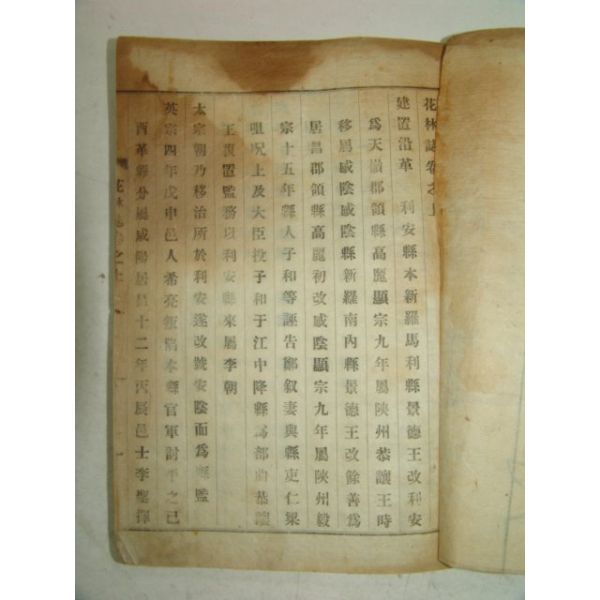 花林誌卷之上
建置沿革 利安縣本新羅馬利縣景德王改利安
爲天嶺郡領縣高麗顯宗九年屬陜州恭讓王時
移屬咸陰咸陰縣新羅南內縣景德王改餘善爲
居昌郡領縣高麗初改咸陰顯宗九年屬陜州毅
宗十五年縣人子和等誣告鄭叙妻與縣吏仁梁
咀呪上及大臣投子和于江中降縣爲部曲恭讓
王復置監務以利安縣來屬李朝
太宗朝乃移治所於利安遂改號安陰而爲縣監
英宗四年戊申邑人希亮叛陷本縣官軍討平之己
酉革縣分屬咸陽居昌十二年丙辰邑士李聖擇
花林誌卷之上